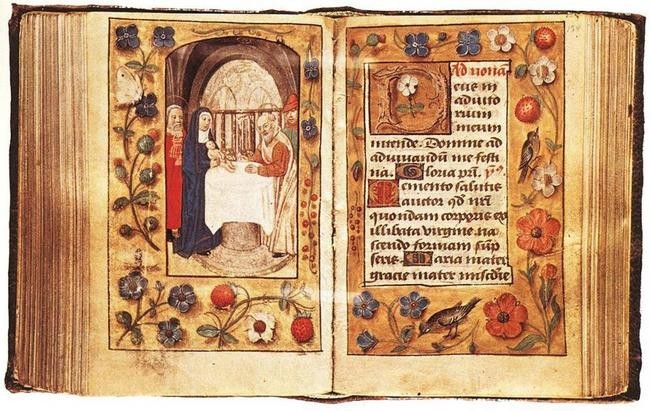 Ad nonā
Deus in
adiuto
rium
meum
intende. Domine ad
adiuuandum me festi
na. Gloria pri.
Memento salutis
auctor qd nri
quondam corporis ex
illibata virgine na
scendo formam sūp
seris. Maria mater
gracie mater